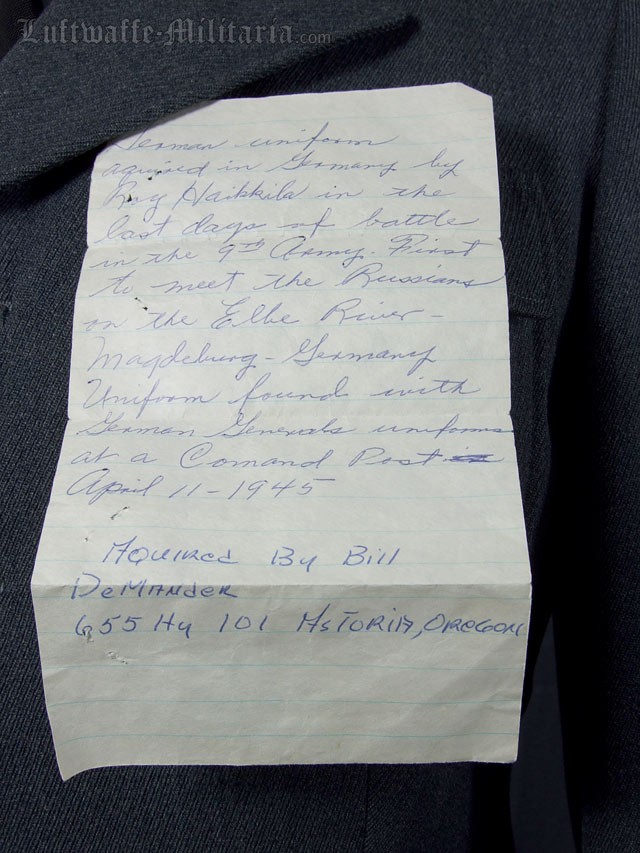 Luftwaffe-Militaria.com
German uniform
aquired in Germany by
Roy Haikkila in the
last days of battle
in the 9th Army. First
to meet the Russians
on the Elbe River -
Magdeburg - Germany
Uniform found with
German Generals uniforms
at a Comand Post
April 11 - 1945
AQUIRED By Bill
DeMANDER
655 Hy 101 ASTORIA, OREGON